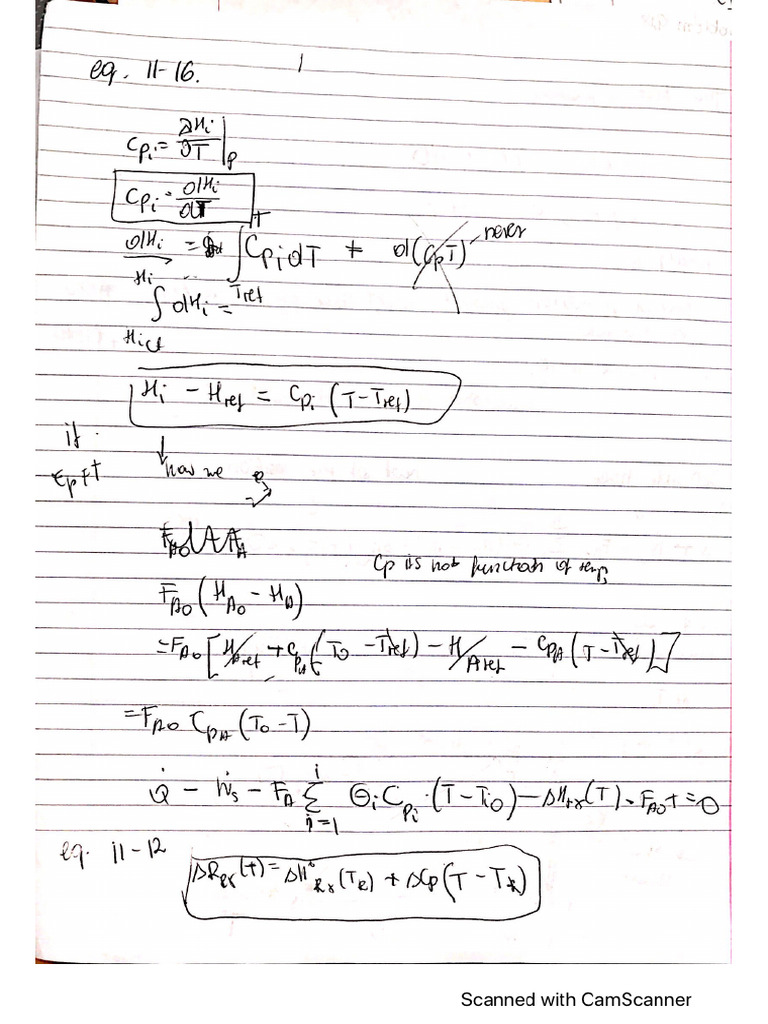 eq. 11-16.
C_{pi} = ∂H_i/∂T |_p
C_{pi} = dH_i/dT
dH_i = ∫_{Tref}^{T} C_{pi} dT + d(C_p T) never
∫_{H_{iref}}^{H_i} dH_i =
H_i - H_{ref} = C_{pi} (T - T_{ref})
if
↓ how we
C_p is not function of temp,
F_{A0} (H_{A0} - H_A)
= F_{A0} [H_{Aref} + C_{PA} (T_0 - T_{ref}) - H_{Aref} - C_{PA} (T - T_{ref})]
= F_{A0} C_{PA} (T_0 - T)
Q̇ - Ẇ_s - F_A Σ_{i=1}^{i} Θ_i C_{pi} · (T - T_{i0}) - ΔH_{rx}(T) · F_{A0} + = 0
eq. 11-12
ΔR_{Rx}(T) = ΔH°_{Rx}(T_R) + ΔC_p (T - T_R)
Scanned with CamScanner